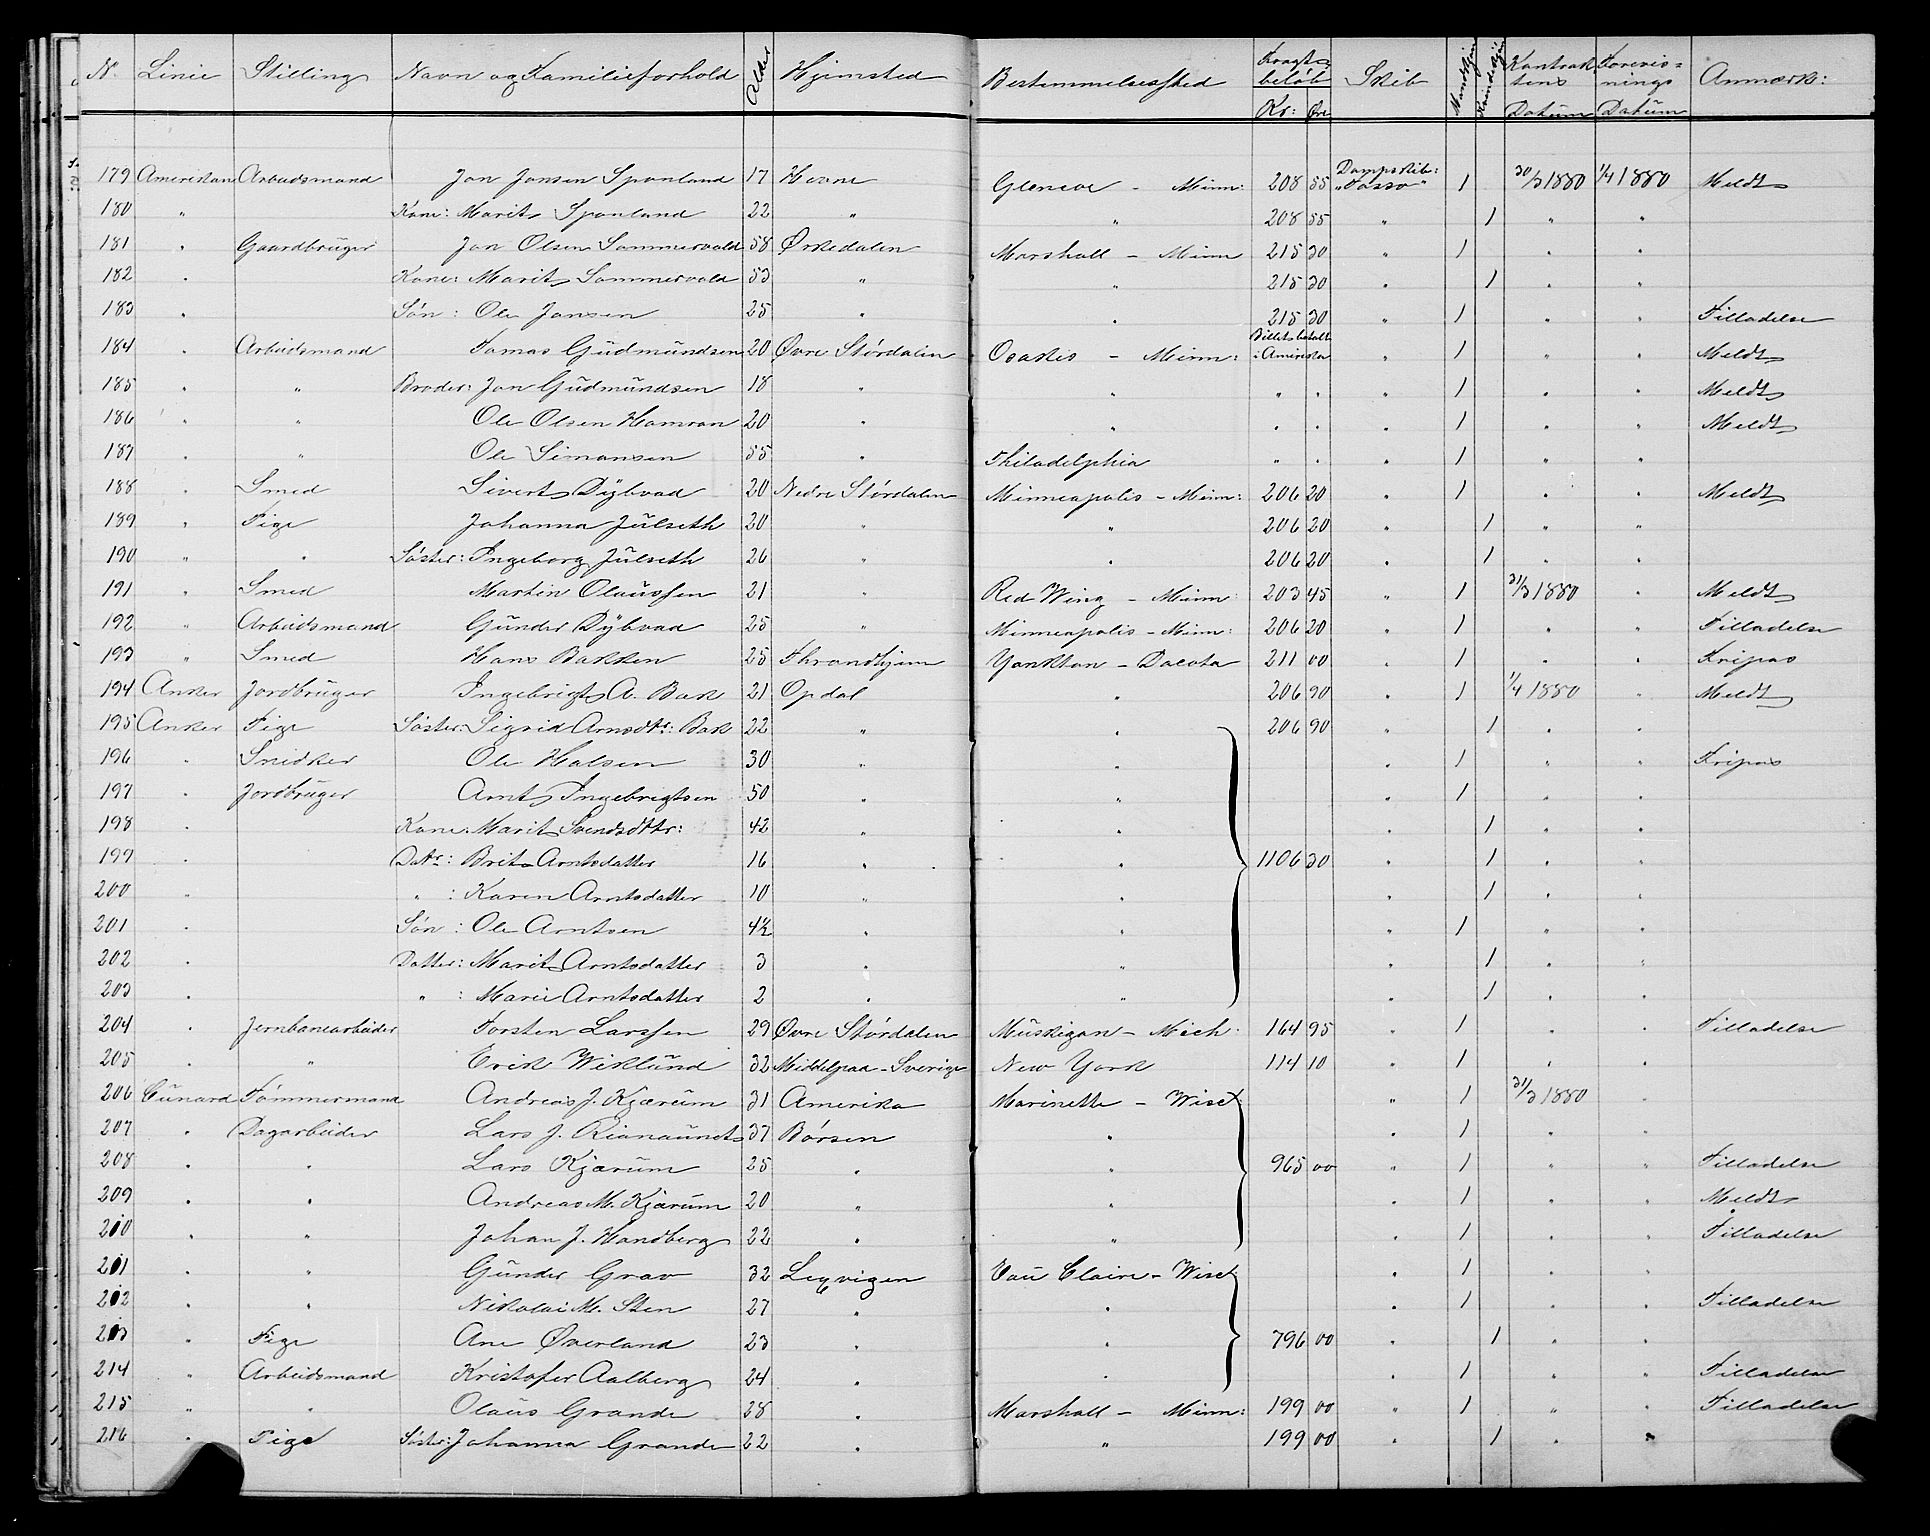 N. Linie Stilling Navn og Familieforhold Alder Hjemsted Bestemmelsessted Fragtbeløb Kr: Øre Skib Mandkjøn Kvindekjøn Kontraktens Datum Forevisnings Datum Anmærk:
179 Amerikan Arbeidsmand Jon Jonsen Sponland 17 Hevne Glencoe - Minn: 208 55 Dampskib: "Tasso" 1 30/3 1880 1/4 1880 Meldt
180 " Kone: Marit Sponland 22 " " 208 55 " 1 " "
181 " Gaardbruger Jon Olsen Sommervold 58 Ørkedalen Marshall - Minn 215 30 " 1 " "
182 " Kone: Marit Sommervold 53 " " 215 30 " 1 " "
183 " Søn: Ole Jonsen 25 " " 215 30 " 1 " " Tilladelse
184 " Arbeidsmand Tomas Gudmundsen 20 Øvre Størdalen Ocakis - Minn: Billet betalt i Amerika " 1 " " Meldt
185 " " Broder: Jon Gudmundsen 18 " " " " " 1 " " Meldt
186 " " Ole Olsen Hamran 20 " " " " " 1 " " Meldt
187 " " Ole Simonsen 55 " Philadelphia " " " 1 " "
188 " Smed Sivert Dybvad 20 Nedre Størdalen Minneapolis - Minn: 206 20 " 1 " " Meldt
189 " Pige Johanna Julseth 20 " " 206 20 " 1 " "
190 " " Søster: Ingeborg Julseth 26 " " 206 20 " 1 " "
191 " Smed Martin Olaussen 21 " Red Wing - Minn: 203 45 " 1 31/3 1880 " Meldt
192 " Arbeidsmand Gunder Dybvad 25 " Minneapolis - Minn: 206 20 " 1 " " Tilladelse
193 " Smed Hans Bakken 25 Throndhjem Yankton - Dacota 211 00 " 1 " " Fripas
194 Anker Jordbruger Ingebrigt A. Bak 21 Opdal " 206 90 " 1 1/4 1880 " Meldt
195 Anker Pige Søster: Sigrid Arnsdtr: Bak 22 " " 206 90 " 1 " "
196 " Snidker Ole Halsen 30 " " " 1 " " Fripas
197 " Jordbruger Arnt Ingebrigtsen 50 " " " 1 " "
198 " Kone: Marit Svendsdttr: 42 " " " 1 " "
199 " Datr: Brit Arntsdatter 16 " " 1106 30 " 1 " "
200 " " : Karen Arntsdatter 10 " " " 1 " "
201 " Søn: Ole Arntsen 4½ " " " 1 " "
202 " Datter: Marit Arntsdatter 3 " " " 1 " "
203 " " : Marie Arntsdatter 2 " " " 1 " "
204 " Jernbanearbeider Torsten Larssen 29 Øvre Størdalen Muskigan - Mich: 164 95 " 1 " " Tilladelse
205 " " Erik Wiklund 32 - Sverige New York 114 10 " 1 " "
206 Cunard Tømmermand Andreas J. Kjærum 31 Amerika Marinette - Wisc: " 1 31/3 1880 "
207 " Dagarbeider Lars J. 37 Børsen " " 1 " "
208 " " Lars Kjærum 25 " " 965 00 " 1 " " Tilladelse
209 " " Andreas M. Kjærum 20 " " " 1 " " Meldt
210 " " Johan J. Handberg 22 " " " 1 " " Tilladelse
211 " " Gunder Grav 32 Lexvigen Eau Claire - Wisc: " 1 " "
212 " " Nikolai M. Sten 27 " " " 1 " " Tilladelse
213 " Pige Ane Øverland 23 " " 796 00 " 1 " "
214 " Arbeidsmand Kristofer Aalberg 24 " " " 1 " " Tilladelse
215 " " Olaus Grande 28 " Marshall - Minn: 199 00 " 1 " " Tilladelse
216 " Pige Søster: Johanna Grande 22 " " 199 00 " 1 " "